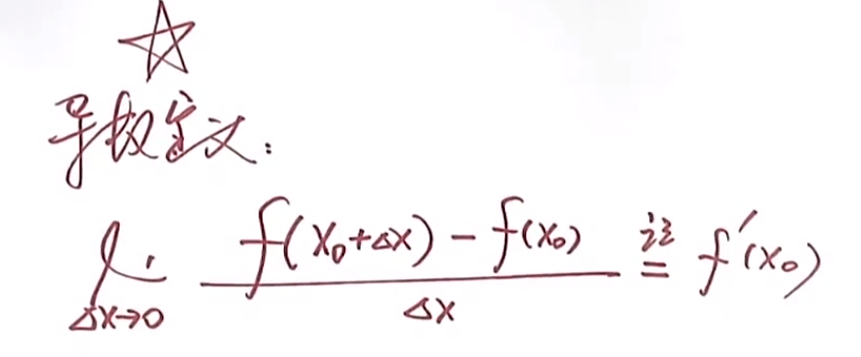 导数定义:
l. Δx→0 f(x₀+Δx)-f(x₀) / Δx 记= f'(x₀)